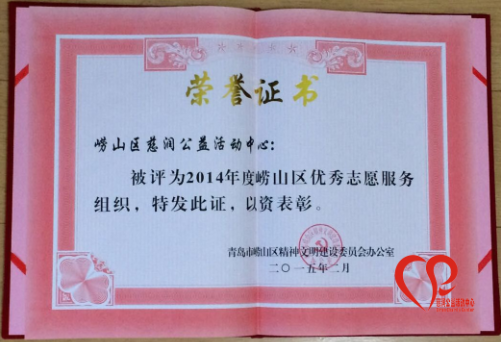 荣誉证书
崂山区慈润公益活动中心：
被评为2014年度崂山区优秀志愿服务
组织，特发此证，以资表彰。
青岛市崂山区精神文明建设委员会办公室
二〇一五年二月
慈润公益活动中心